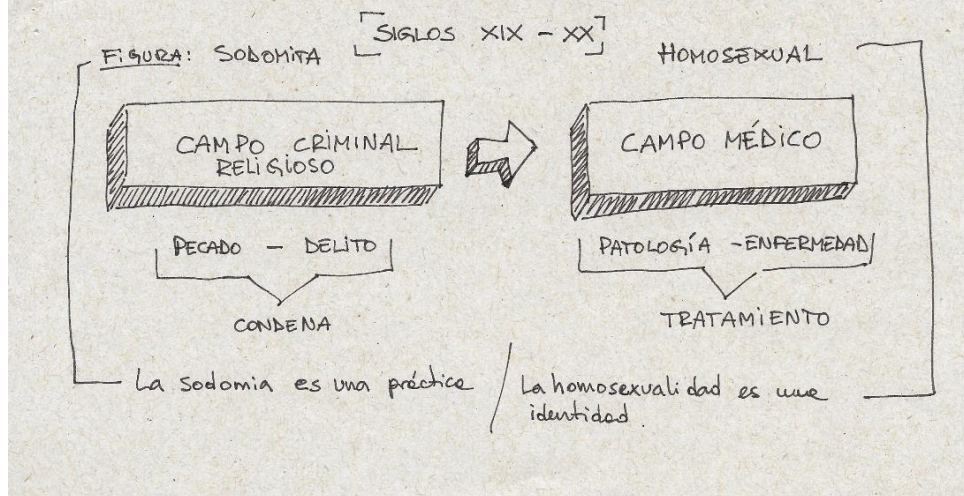 [SIGLOS XIX - XX]
FIGURA: SODOMITA
HOMOSEXUAL
CAMPO CRIMINAL
RELIGIOSO
CAMPO MÉDICO
PECADO - DELITO
PATOLOGÍA - ENFERMEDAD
CONDENA
TRATAMIENTO
La sodomia es una práctica /
La homosexualidad es una
identidad.